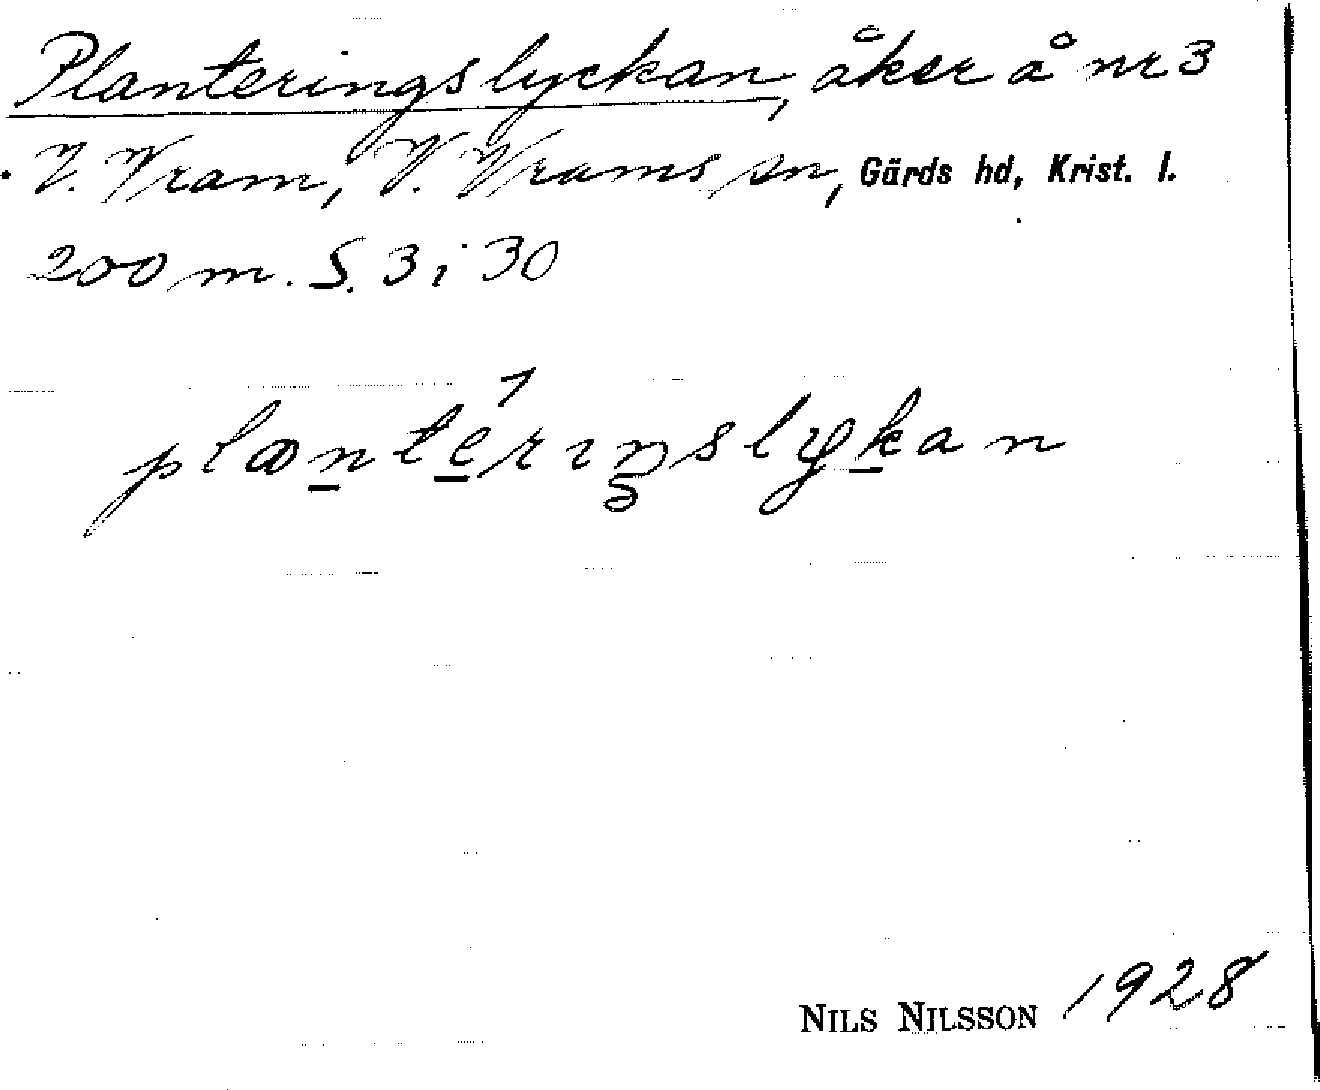 Planteringslyckan, åker å nr 3
V. Vram, V. Vrams sn, Gärds hd, Krist. l.
200 m. S. 3 i 30
plantérıŋslykan
NILS NILSSON 1928